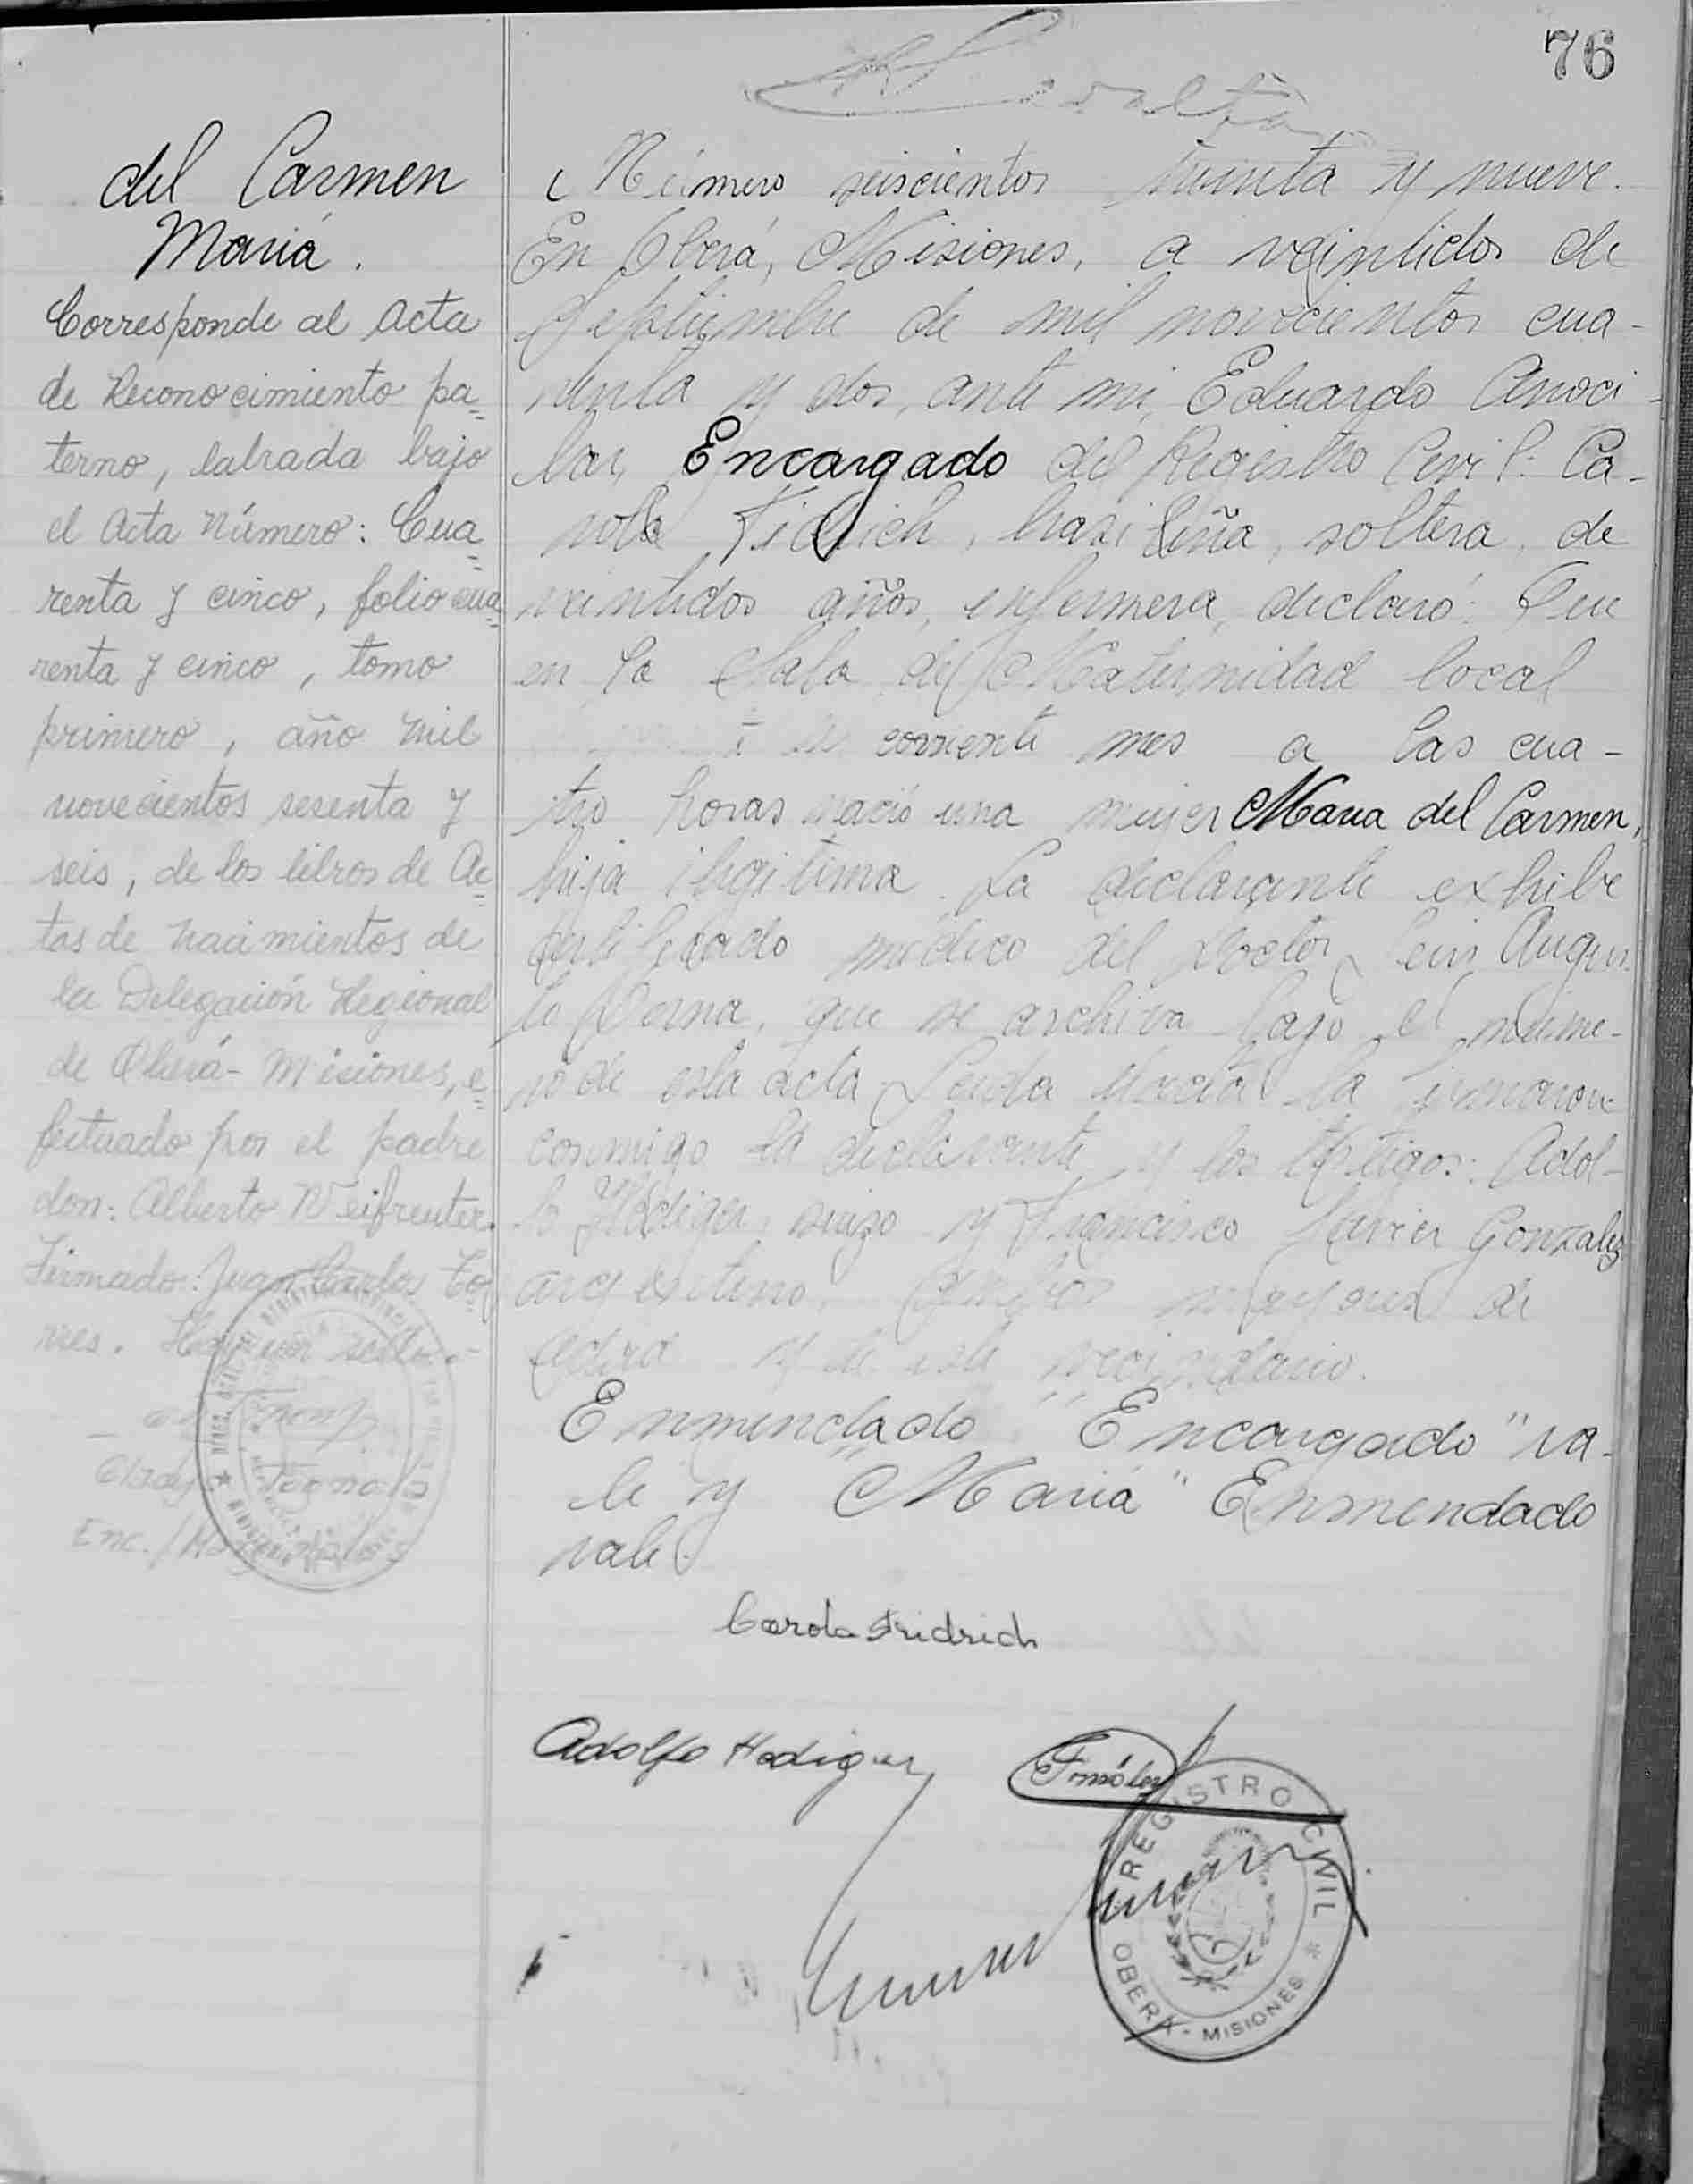 76
del Carmen
Maria.
Corresponde al Acta
de Reconocimiento pa=
terno, labrada bajo
el Acta Número: Cua=
renta y cinco, folio cua=
renta y cinco, tomo
primero, año mil
novecientos sesenta y
seis, de los libros de Ac=
tas de Nacimientos de
la Delegación Regional
de Oberá - Misiones, e=
fectuado por el padre
don: Alberto Weifreuter.
Firmado: Juan Carlos To=
rres. Hay un sello.-
Enc.
Número seiscientos treinta y nueve.
En Oberá, Misiones, a veintidos de
Septiembre de mil novecientos cua-
renta y dos, ante mi, Eduardo
Encargado del Registro Civil: Ca-
rola Fidrich, brasileña, soltera, de
veintidos años, enfermera, declaró: Que
en la Sala de Maternidad local
corriente mes a las cua-
tro horas nació una mujer Maria del Carmen,
hija ilegitima. La declarante exhibe
certificado médico del Doctor Luis Augus-
to Derna, que se archiva bajo el núme-
ro de esta acta. Leida el acta la firmaron
conmigo la declarante y los testigos: Adol-
fo Hediger, suizo y Francisco Xavier Gonzalez
argentino, ambos mayores de
edad y de este vecindario.
Enmendado "Encargado" va-
le y "Maria" Enmendado
vale.
Carola Fridrich
Adolfo Hediger
REGISTRO CIVIL
OBERÁ - MISIONES